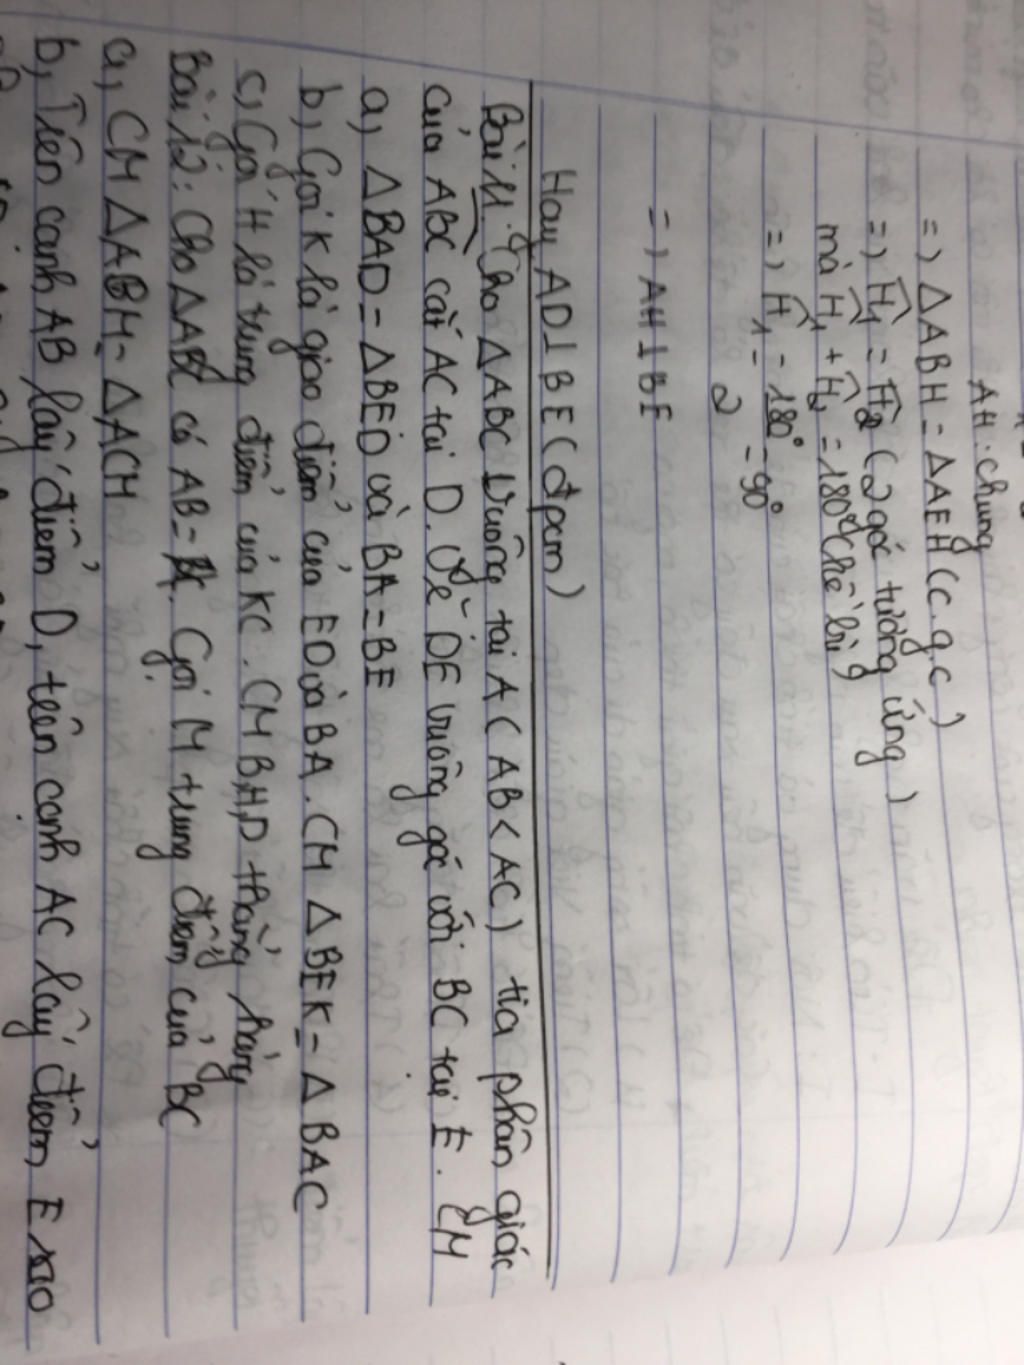 AH: chung
=> ΔABH = ΔAEH (c.g.c)
=> Ĥ1 = Ĥ2 (2 góc tương ứng)
mà Ĥ1 + Ĥ2 = 180° (kề bù)
=> Ĥ1 = 180°/2 = 90°
=> AH ⊥ BE
Hay AD ⊥ BE (đpcm)
Bài 11: Cho ΔABC vuông tại A (AB < AC) tia phân giác
của ABC cắt AC tại D. Vẽ DE vuông góc với BC tại E. CM
a, ΔBAD = ΔBED và BA = BE
b, Gọi K là giao điểm của ED và BA. CM ΔBEK = ΔBAC
c, Gọi H là trung điểm của KC. CM B,H,D thẳng hàng
Bài 12: Cho ΔABC có AB = AC. Gọi M trung điểm của BC
a, CM ΔABM = ΔACM
b, Trên cạnh AB lấy điểm D, trên cạnh AC lấy điểm E sao